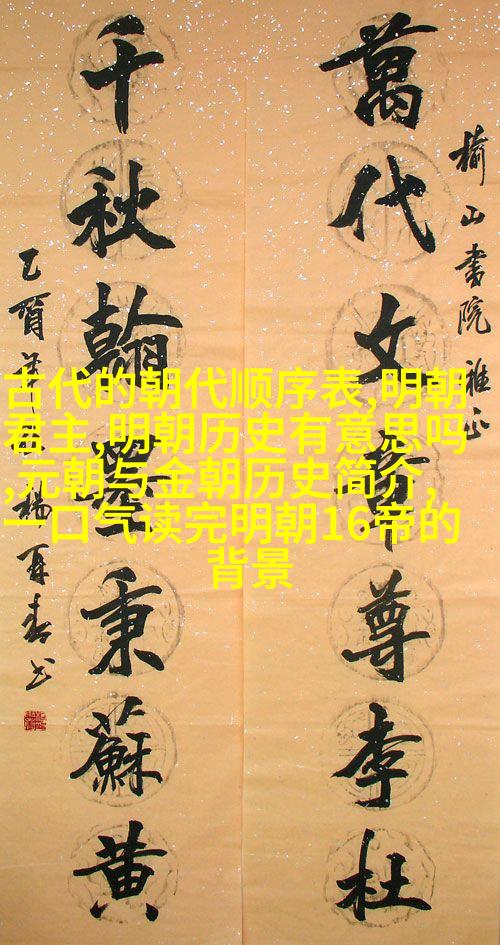 榆山書院雅正
萬代文章尊李杜
千秋翰墨秉蘇黄
乙酉年
楊再春书
古代的朝代顺序表,明朝
君主,明朝历史有意思吗
,元朝与金朝历史简介,
一口气读完明朝16帝的
背景